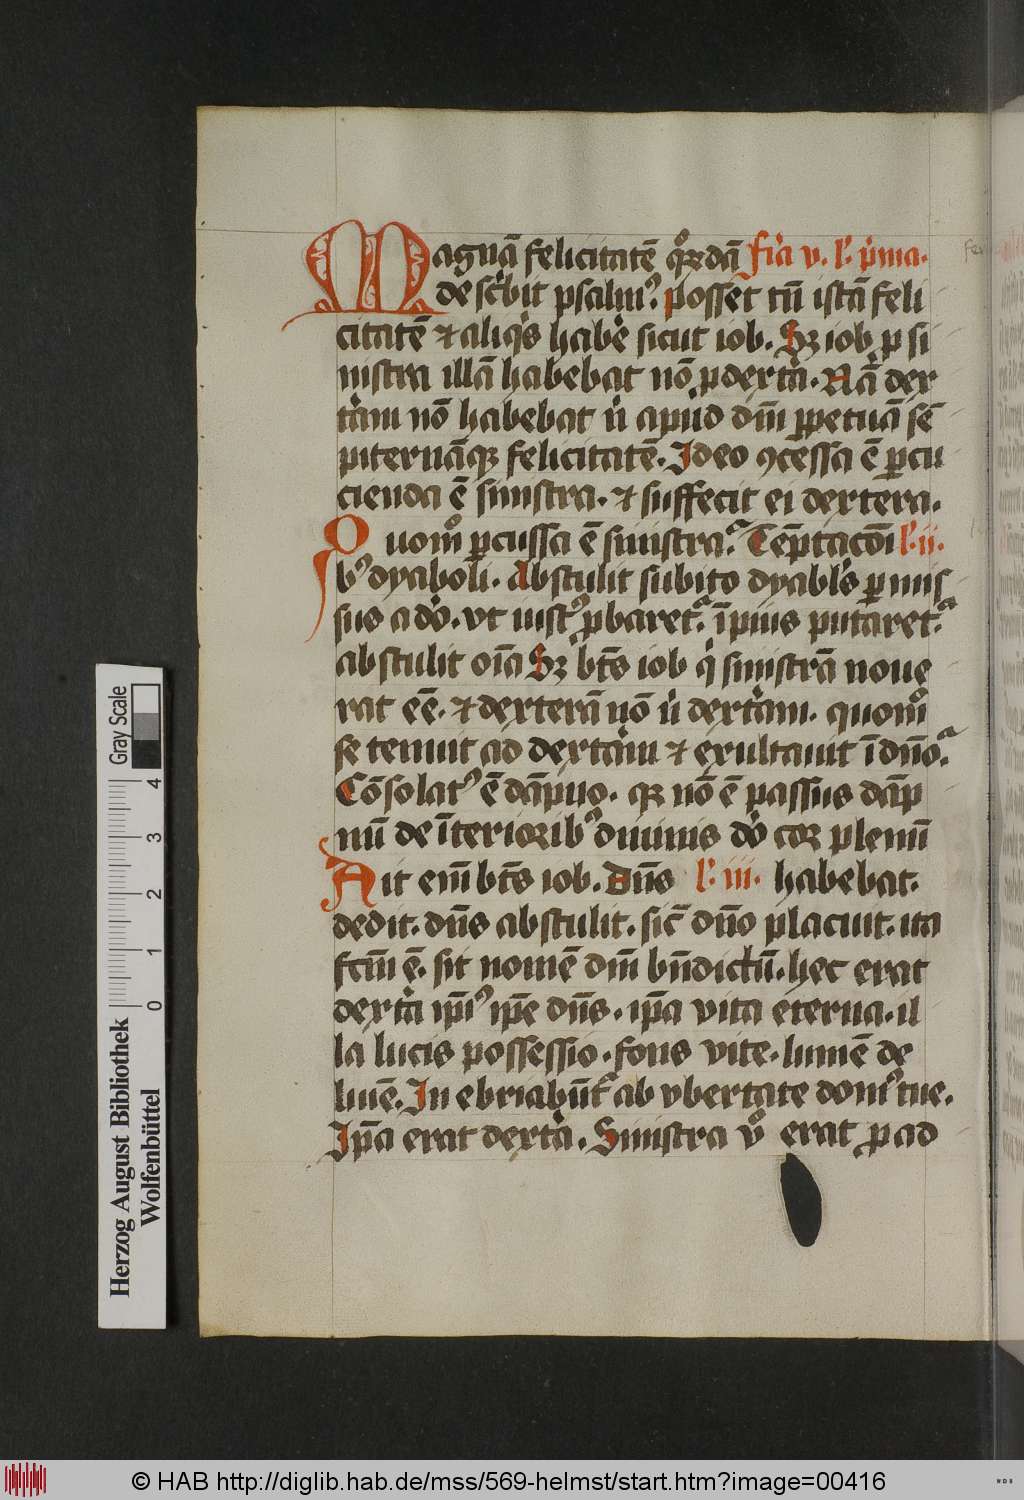 Magnā felicitatē q̊rdā fr̄ia v. l̓. p̓ma.
describit psalmꝰ. posset tn̄ istā feli
citatē ⁊ aliq̓s habe̓ sicut iob. Sꝫ iob ꝑ si
nistra illā habebat nō ꝑ dext̓ā. Nā dex
t̓am nō habebat n̓ apud dm̄ ꝑpetuā sē
piternāqꝫ felicitatē. Ideo ꝯcessa ē ꝑcu
cienda ē sinistra. ⁊ suffecit ei dextera.
Quom̊ ꝑcussa ē sinistra. Tēptacōi l̓. ii.
bꝰ dyaboli. Abstulit subito dyabl̓s ꝑmis
sus a dō. vt iustꝰ ꝓbaret᷑. īpius putaret᷑.
abstulit oīa Sꝫ bt̄s iob q̓ sinistrā noue
rat eē. ⁊ dexterā nō n̓ dext̓am. quom̊
se tenuit ad dext̓am ⁊ exultauit ī dn̄o.
Cōsolatꝰ ē dāpno. qꝫ nō ē passus dāp
nū de īterioribꝰ diuinis dō cor plenū
Ait em̄ bt̄s iob. Dn̄s l̓. iii. habebat.
dedit. dn̄s abstulit. sic̄ dn̄o placuit. ita
fcm̄ ē. sit nomē dm̄ bn̄dictū. hec erat
dext̓a ip̄iꝰ ip̄e dn̄s. ip̄a vita eterna. il
la lucis possessio. fons vite. lumē de
luīe. In ebriabūt᷑ ab vbertate domꝰ tue.
Ip̄a erat dext̓a. Sinistra v̊ erat ꝓ ad
Gray Scale
0 1 2 3 4
Herzog August Bibliothek
Wolfenbüttel
© HAB http://diglib.hab.de/mss/569-helmst/start.htm?image=00416